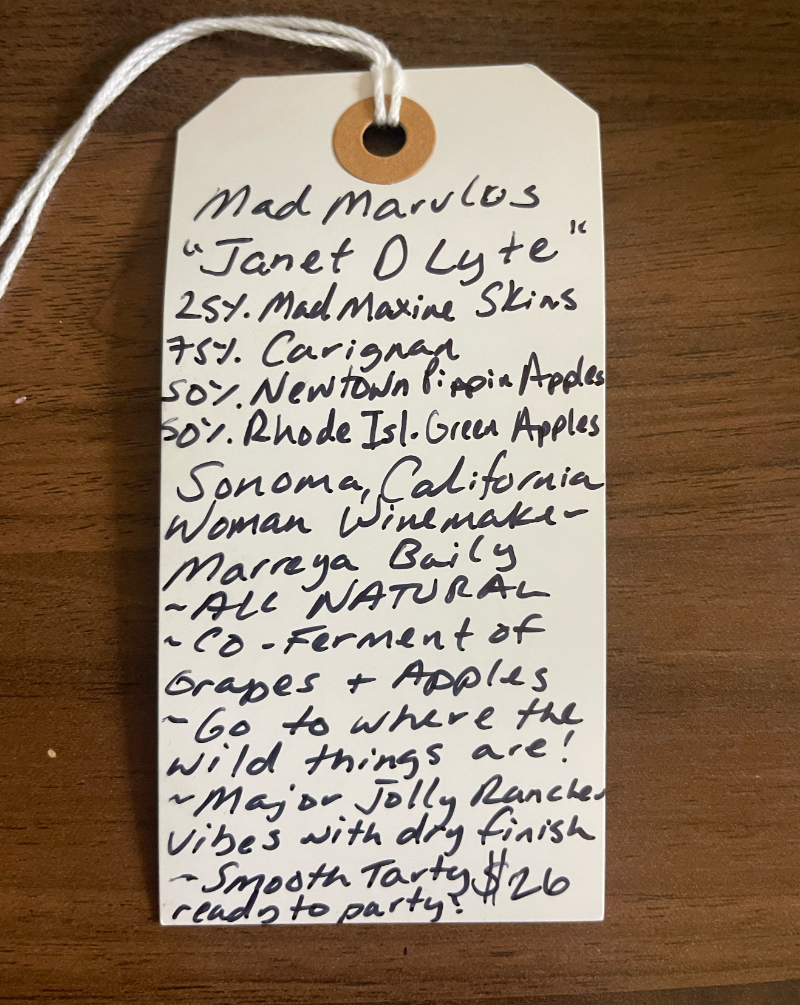 Mad Marvlus
"Janet D Lyte"
25%. Mad Maxine Skins
75%. Carignan
50%. Newtown Pippin Apples
50%. Rhode Isl. Green Apples
Sonoma, California
Woman Winemake-
Marreya Baily
~ALL NATURAL
~CO-Ferment of
Grapes + Apples
~Go to where the
wild things are!
~Major Jolly Rancher
vibes with dry finish
~Smooth Tarty $26
ready to party!